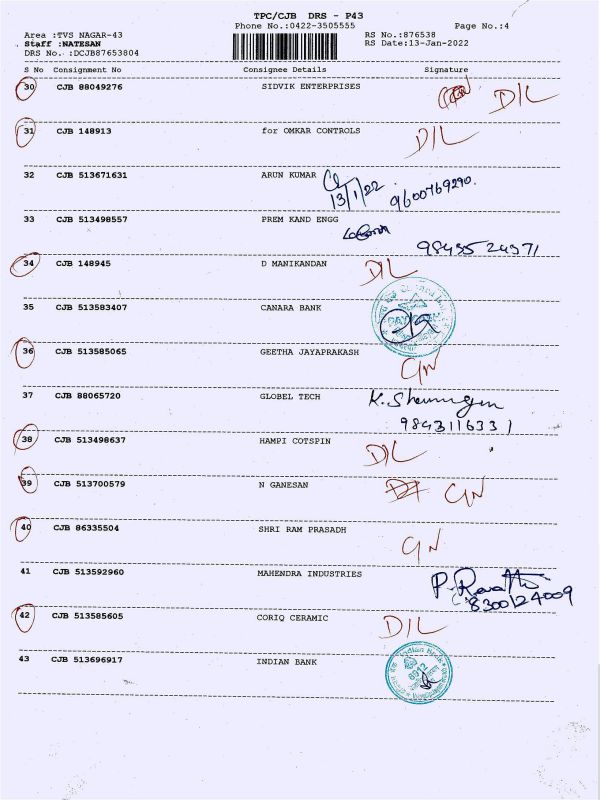 TPC/CJB DRS - P43
Phone No.:0422-3505555 Page No.:4
Area :TVS NAGAR-43 RS No.:876538
Staff :NATESAN RS Date:13-Jan-2022
DRS No. :DCJB87653804
S No Consignment No Consignee Details Signature
30 CJB 88049276 SIDVIK ENTERPRISES D/L
31 CJB 148913 for OMKAR CONTROLS D/L
32 CJB 513671631 ARUN KUMAR 13/1/22 9600769290.
33 CJB 513498557 PREM KAND ENGG
9843524371
34 CJB 148945 D MANIKANDAN D/L
35 CJB 513583407 CANARA BANK
36 CJB 513585065 GEETHA JAYAPRAKASH C/N
37 CJB 88065720 GLOBEL TECH K. Shanmugam
9843116331
38 CJB 513498637 HAMPI COTSPIN D/L
39 CJB 513700579 N GANESAN C/N
40 CJB 86335504 SHRI RAM PRASADH C/N
41 CJB 513592960 MAHENDRA INDUSTRIES P. Revathi
8300124009
42 CJB 513585605 CORIQ CERAMIC D/L
43 CJB 513696917 INDIAN BANK Indian Bank